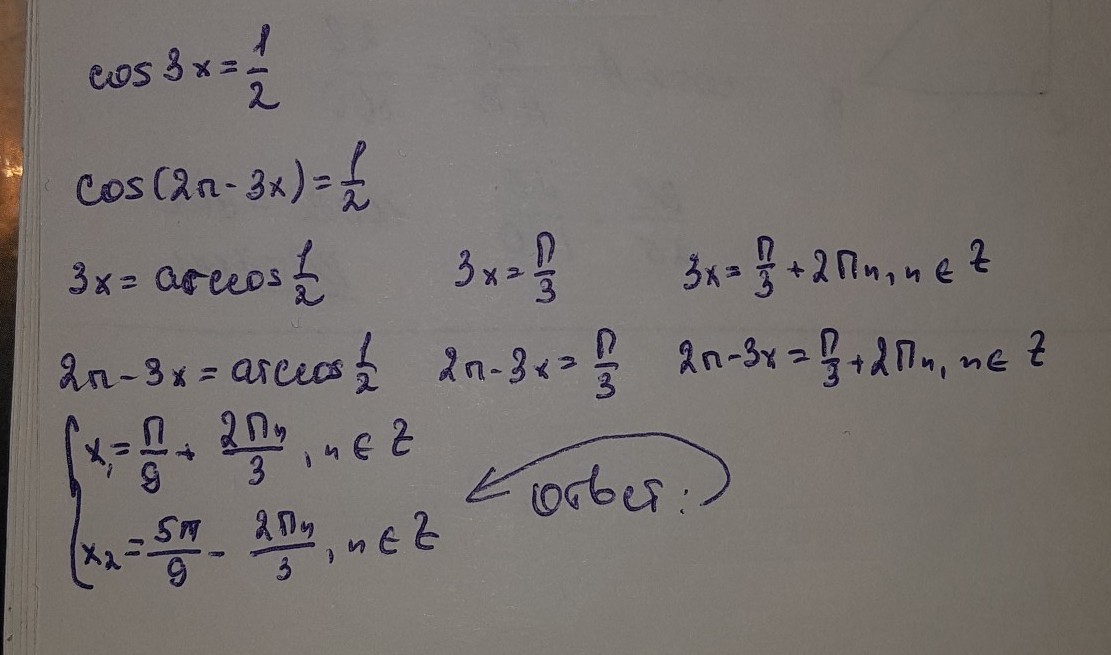 cos 3x = 1/2
cos(2π - 3x) = 1/2
3x = arccos 1/2   3x = π/3   3x = π/3 + 2πn, n ∈ Z
2π - 3x = arccos 1/2   2π - 3x = π/3   2π - 3x = π/3 + 2πn, n ∈ Z
{ x₁ = π/9 + 2πn/3, n ∈ Z
ответ:
x₂ = 5π/9 - 2πn/3, n ∈ Z